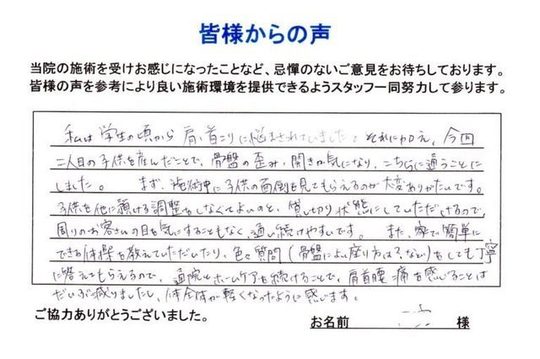 皆様からの声
当院の施術を受けお感じになったことなど、忌憚のないご意見をお待ちしております。
皆様の声を参考により良い施術環境を提供できるようスタッフ一同努力して参ります。
私は学生の頃から肩、首こりに悩まされていました。それに加え、今回
二人目の子供を産んだことで、骨盤の歪み・開きが気になり、こちらに通うことに
しました。 まず、施術中に子供の面倒を見てもらえるのが大変ありがたいです。
子供を他に預ける調整をしなくてよいのと、貸し切り状態にしていただけるので、
周りのお客さんの目を気にすることもなく、通い続けやすいです。 また、家で簡単に
できる体操を教えていただいたり、色々質問(骨盤によい座り方は?など)をしても丁寧
に答えてもらえるので、通院とホームケアを続けることで、肩首腰痛を感じることは
だいぶ減りましたし、体全体が軽くなったように感じます。
ご協力ありがとうございました。
お名前 様